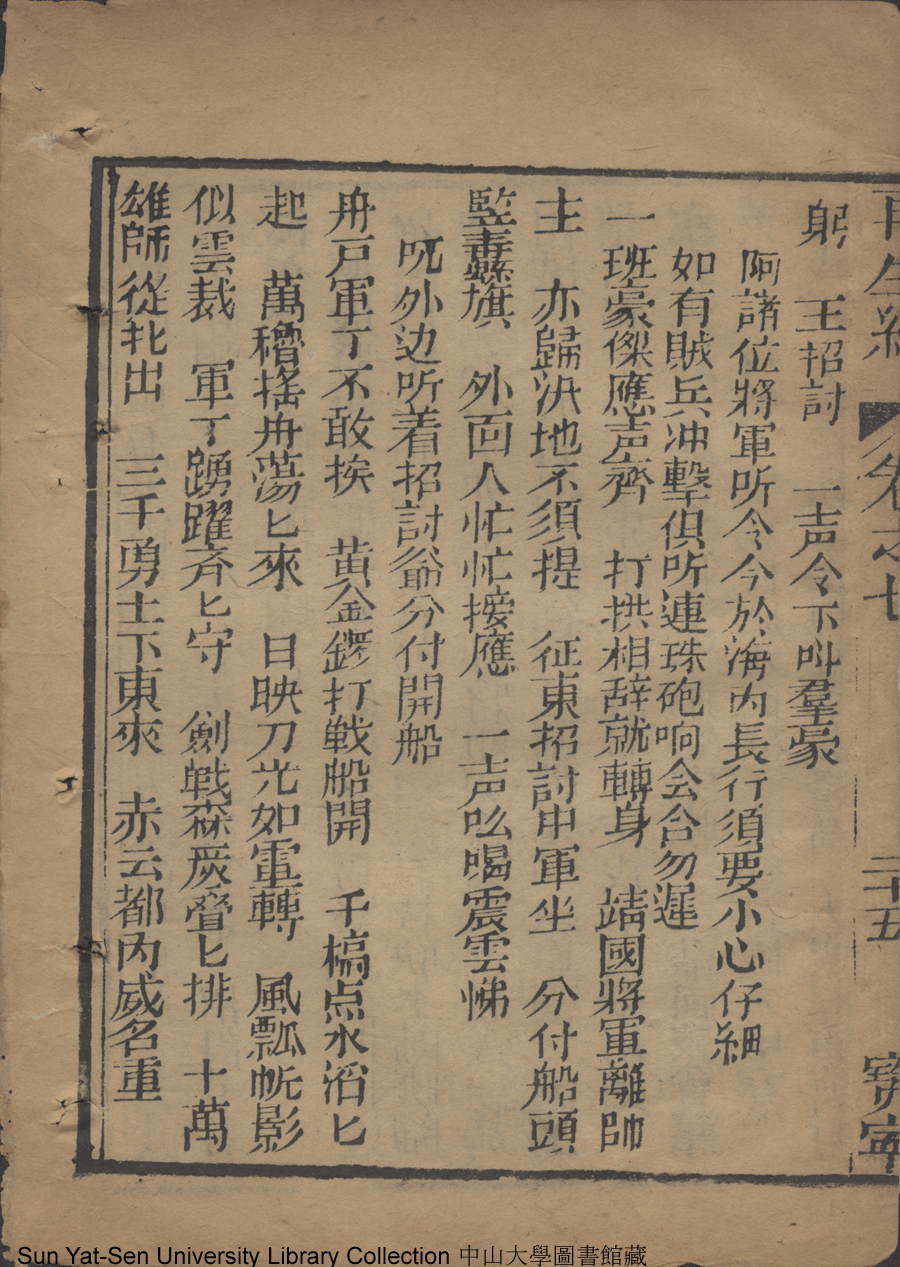 再生緣 卷之七 二十五 寳寧
躬 王招討 一声令下叫羣豪
阿諸位將軍听令今於海内長行須要小心仔細
如有賊兵冲擊俱听連珠砲响会合勿遲
一班豪傑應声齊 打拱相辞就轉身 靖國將軍離帥
主 亦歸汛地不須提 征東招討中軍坐 分付船頭
竪纛旗 外面人忙忙接應 一声吆喝震雲悌
既外边听着招討爺分付開船
舟戸軍丁不敢挨 黄金鑼打戦船開 千槁点水滔匕
起 萬櫓揺舟蕩匕來 日映刀光如電轉 風飄帆影
似雲裁 軍丁踴躍斉匕守 劍戟森严叠匕排 十萬
雄師從北出 三千勇士下東來 赤云都内威名重
Sun Yat-Sen University Library Collection 中山大學圖書館藏